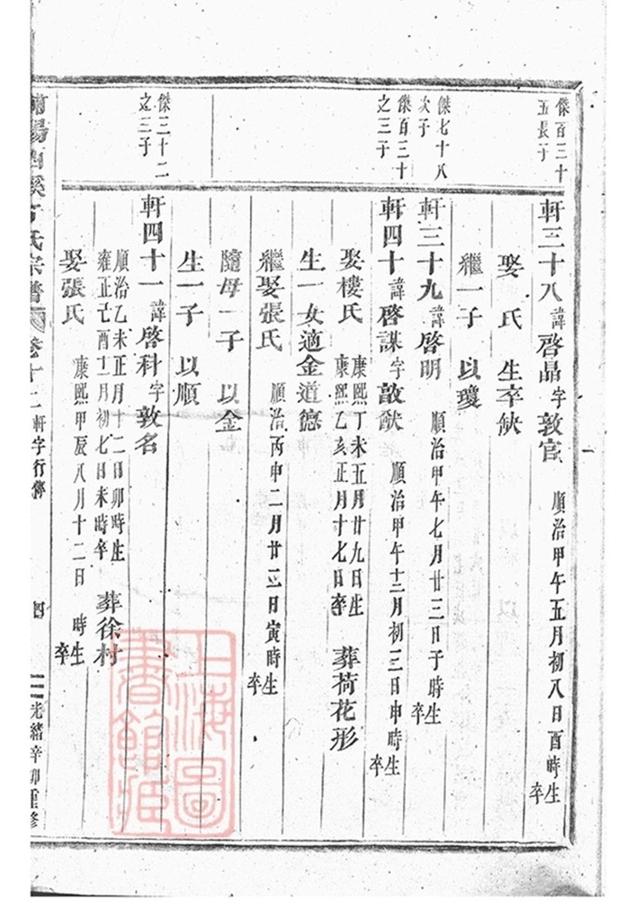 傑百三十
五長子
軒三十八諱啓晶字敦官 順治甲午五月初八日酉時生
卒
娶 氏 生卒缺
繼一子 以瓊
傑七十八
次子
軒三十九諱啓明 順治甲午七月廿三日子時生
卒
傑百三十
之三子
軒四十諱啓謀字敦猷 順治甲午十二月初三日申時生
卒
娶樓氏 康熙丁未五月廿九日生
康熙乙亥正月十七日卒 葬荷花形
生一女適金道德
繼娶張氏 順治丙申二月廿三日寅時生
卒
隨母一子 以金
生一子 以順
傑三十二
之三子
軒四十一諱啓科字敦名
順治乙未正月十二日卯時生
雍正己酉十一月初七日未時卒 葬徐村
娶張氏 康熙甲辰八月十二日 時生
卒
陽 溪丁氏宗譜 卷十二 軒字行傳 四 光緒辛卯重修
上海圖
書館藏